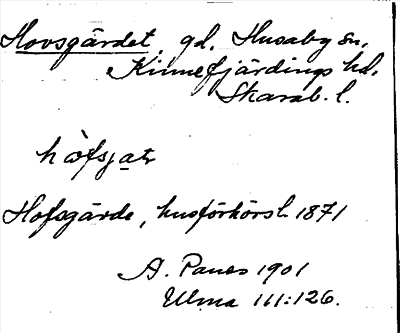 Hovsgärdet, gd. Husaby sn,
Kinnefjärdings hd,
Skarab. l.
hȯfsja̱tɩ
Hofsgärde, husförhörsl. 1871
A. Panes 1901
Ulma 111:126.